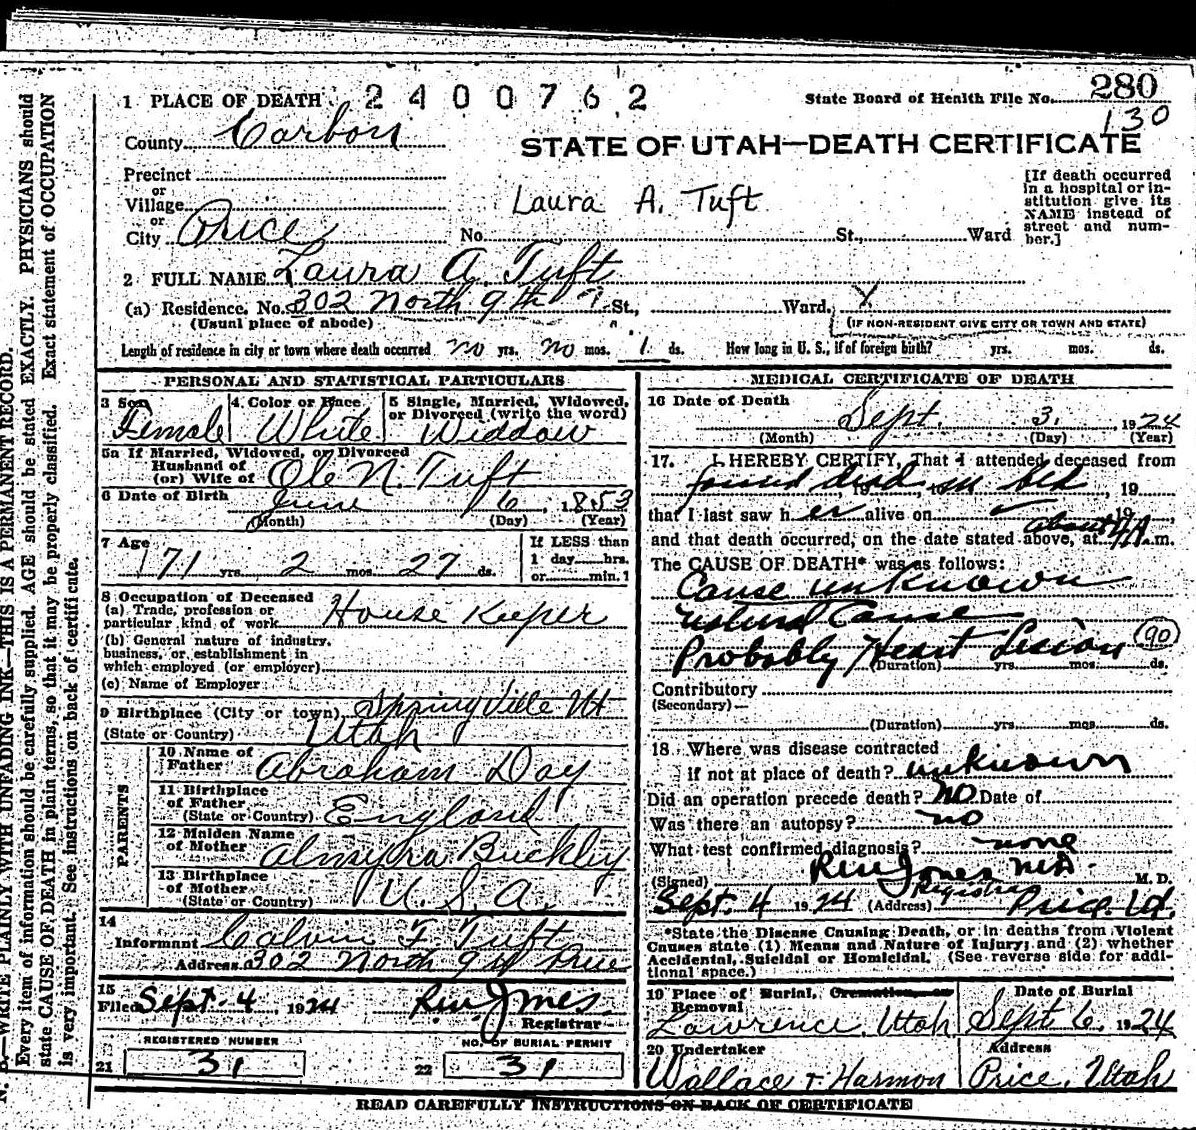 1 PLACE OF DEATH 2400762
State Board of Health File No. 280
130
County Carbon
STATE OF UTAH—DEATH CERTIFICATE
Precinct
or
Village
or
City Price No. St., Ward
Laura A. Tuft
[If death occurred in a hospital or institution give its NAME instead of street and number.]
2 FULL NAME Laura A. Tuft
(a) Residence. No. 302 North 9th St., Ward,
(Usual place of abode)
(IF NON-RESIDENT GIVE CITY OR TOWN AND STATE)
Length of residence in city or town where death occurred no yrs. no mos. 1 ds. How long in U. S., if of foreign birth? yrs. mos. ds.
PERSONAL AND STATISTICAL PARTICULARS
3 Sex Female
4 Color or Race White
5 Single, Married, Widowed, or Divorced (write the word) Widdow
5a If Married, Widowed, or Divorced
Husband of
(or) Wife of Ole N. Tuft
6 Date of Birth June 6, 1853
(Month) (Day) (Year)
7 Age 71 yrs. 2 mos. 27 ds.
If LESS than
1 day hrs.
or min.?
8 Occupation of Deceased
(a) Trade, profession or
particular kind of work House Keeper
(b) General nature of industry,
business, or establishment in
which employed (or employer)
(c) Name of Employer
9 Birthplace (City or town) Springville Ut
(State or Country) Utah
PARENTS
10 Name of
Father Abraham Day
11 Birthplace
of Father
(State or Country) England
12 Maiden Name
of Mother Almyra Buckley
13 Birthplace
of Mother
(State or Country) U. S. A.
14
Informant Calvin F Tuft
Address 302 North 9th Price
15
Filed Sept. 4, 1924
Registrar
REGISTERED NUMBER
21 31
NO. OF BURIAL PERMIT
22 31
MEDICAL CERTIFICATE OF DEATH
16 Date of Death
Sept. 3, 1924
(Month) (Day) (Year)
17. I HEREBY CERTIFY, That I attended deceased from
found dead in bed, 19
that I last saw her alive on 19
and that death occurred, on the date stated above, at about m.
The CAUSE OF DEATH* was as follows:
Cause unknown
Natural Cause
Probably Heart Lesion (90)
(Duration) yrs. mos. ds.
Contributory
(Secondary)—
(Duration) yrs. mos. ds.
18 Where was disease contracted
if not at place of death? unknown
Did an operation precede death? no Date of
Was there an autopsy? no
What test confirmed diagnosis? none
(Signed) Jones M.D. M. D.
Sept. 4 1924 (Address) Registrar Price, Ut.
*State the Disease Causing Death, or in deaths from Violent
Causes state (1) Means and Nature of Injury; and (2) whether
Accidental, Suicidal or Homicidal. (See reverse side for additional space.)
19 Place of Burial, Cremation, or
Removal
Lawrence, Utah
Date of Burial
Sept 6, 1924
20 Undertaker
Wallace & Harmon
Address
Price, Utah
READ CAREFULLY INSTRUCTIONS ON BACK OF CERTIFICATE
N. B.—WRITE PLAINLY WITH UNFADING INK—THIS IS A PERMANENT RECORD.
Every item of information should be carefully supplied. AGE should be stated EXACTLY. PHYSICIANS should
state CAUSE OF DEATH in plain terms, so that it may be properly classified. Exact statement of OCCUPATION
is very important. See instructions on back of certificate.